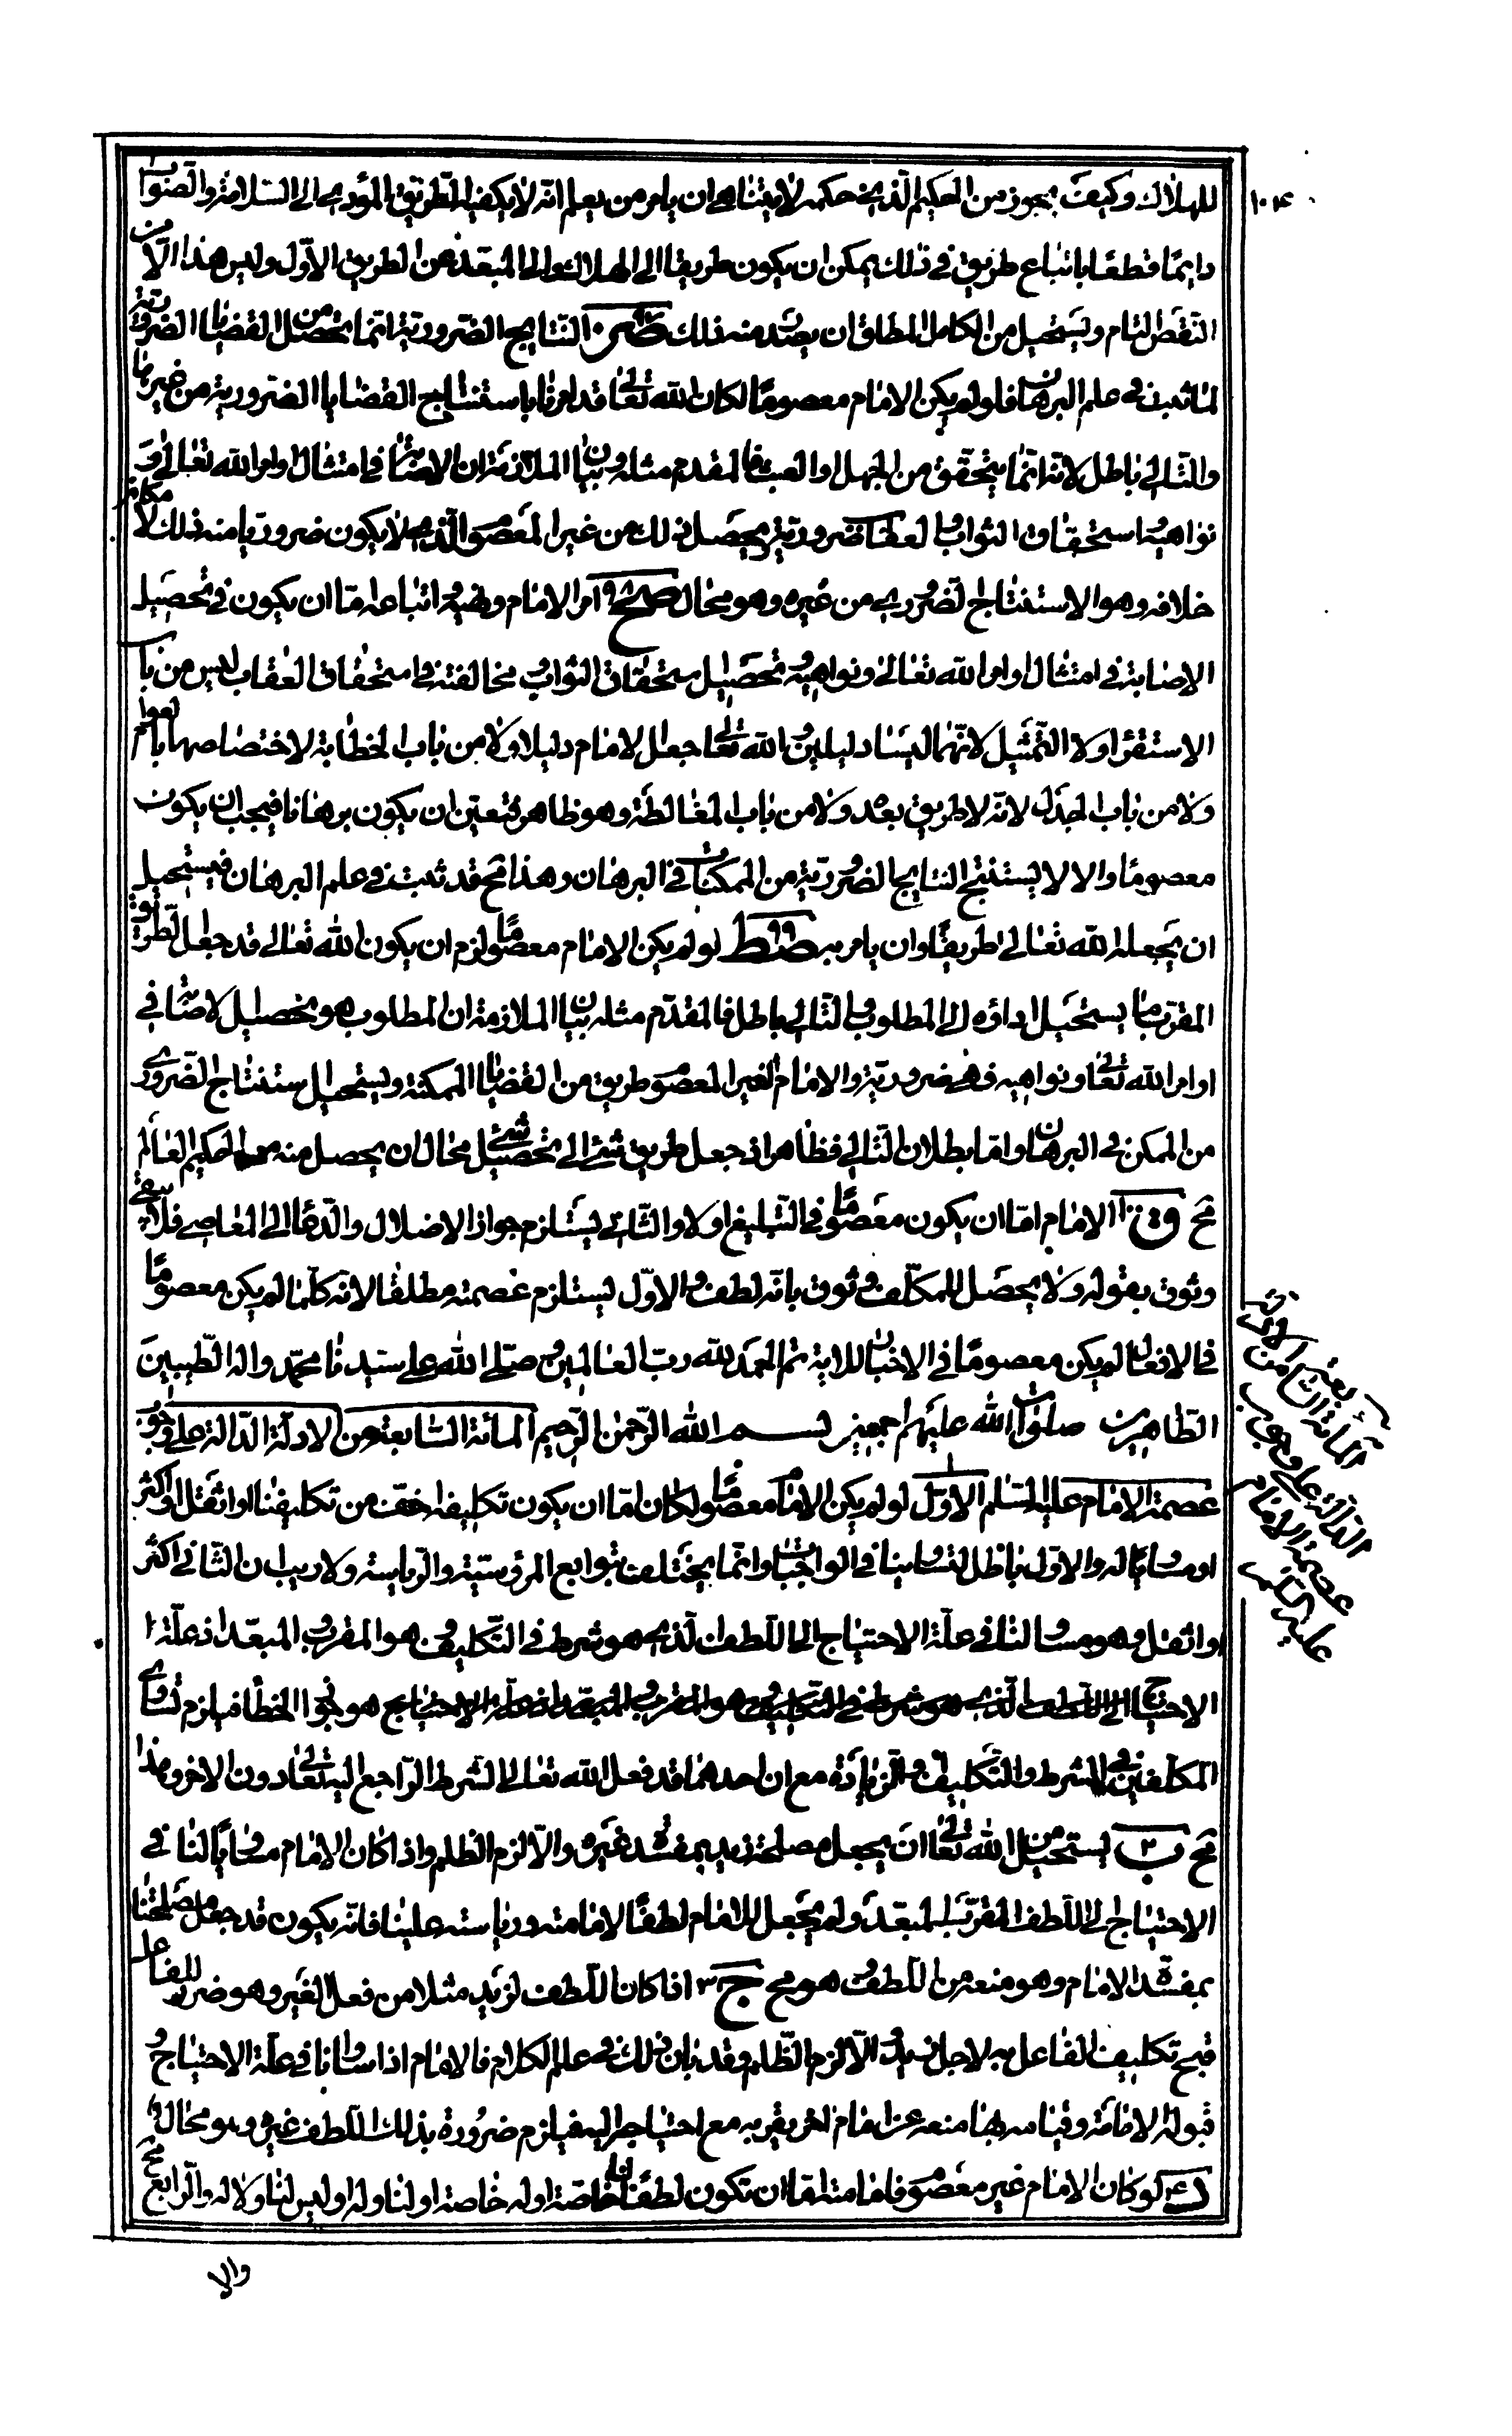 للهلاك وكيف يجوز من الحكيم الذي حكمه لا يتناهى ان يامر من يعلم انه لا يكفيه الطريق المؤدي الى السلامة والصواب
دايما قطعا باتباع طريق في ذلك يمكن ان يكون طريقا الى الهلاك والى المبعد عن الطريق الاول وليس هذا الا من
النقص التام ويستحيل من الكامل المطلق ان يصدر منه ذلك صز ٩٧ النتايج الضرورية انما تحصل من القضايا الضرورية
لما ثبت في علم البرهان فلو لم يكن الامام معصوما لكان الله تعالى قد امرنا باستنتاج القضايا الضرورية من غيرها
والتالي باطل لانه انما يتحقق من الجهل او العبث فالمقدم مثله وبيان الملازمة ان الاصابة في امتثال اوامر الله تعالى و
نواهيه واستحقاق الثواب لها ضرورية وتحصل ذلك من غير المعصوم الذي لا يكون ضروريا منه ذلك لامكان
خلافه وهو الاستنتاج الضروري من غيره وهو محال صح ٩٨ امر الامام ونهيه واتباعه اما ان يكون في تحصيل
الاصابة في امتثال اوامر الله تعالى ونواهيه وتحصيل استحقاق الثواب ومخالفته في استحقاق العقاب ليس من باب
الاستقرا ولا التمثيل لانهما ليسا دليلين والله تعالى جعل الامام دليلا ولا من باب الخطابة لاختصاصها بالعوام
ولا من باب الجدل لانه لا طريق بعد ولا من باب المغالطة وهو ظاهر فتعين ان يكون برهانا فيجب ان يكون
معصوما والا لا يستنتج النتايج الضرورية من الممكنات في البرهان وهذا مح قد ثبت في علم البرهان فيستحيل
ان يجعله الله تعالى طريقا وان يامر به صط ٩٩ لو لم يكن الامام معصوما لزم ان يكون الله تعالى قد جعل الطريق
المقرب ما يستحيل اداؤه الى المطلوب والتالي باطل فالمقدم مثله بيان الملازمة ان المطلوب هو تحصيل الاصابة في
اوامر الله تعالى ونواهيه فهي ضرورية والامام الغير المعصوم طريق من القضايا الممكنة ويستحيل استنتاج الضروري
من الممكن في البرهان واما بطلان التالي فظاهر اذ جعل طريق شئ الى تحصيل شئ محال ان يحصل منه من الحكيم العالم
مح ق ١٠٠ الامام اما ان يكون معصوما في التبليغ او لا والثاني يستلزم جواز الاضلال والدعا الى المعاصي فلا يبقى
وثوق بقوله ولا يحصل للمكلف وثوق بانه لطف والاول يستلزم عصمته مطلقا لانه كلما لم يكن معصوما
في الافعال لم يكن معصوما في الاخبار للاية تم الحمد لله رب العالمين وصلى الله على سيدنا محمد واله الطيبين
الطاهرين صلوات الله عليهم اجمعين بسم الله الرحمن الرحيم المائة السابعة من الادلة الدالة على وجوب
عصمة الامام عليه السلم الاول ١ لو لم يكن الامام معصوما لكان اما ان يكون تكليفه اخف من تكليفنا او اثقل او اكثر
او مساويا له والاول باطل لتساوينا في الواجبات وانما يختلف بتوابع المرؤسية والرياسة ولا ريب ان الثاني اكثر
واثقل وهو مساو لنا في علة الاحتياج الى اللطف الذي هو شرط في التكليف وهو المقرب والمبعد اذ علة
الاحتياج الى اللطف الذي هو شرط في التكليف وهو المقرب والمبعد اذ علة الاحتياج هو جواز الخطأ فيلزم تساوي
المكلفين في الشرط والتكليف والزيادة مع ان احدهما قد فعل الله تعالى الشرط الراجع اليه تعالى دون الاخر وهذا
مح ب ٢ يستحيل من الله تعالى ان يجعل مصلحة زيد بمفسدة غيره والا لزم الظلم واذا كان الامام مساويا لنا في
الاحتياج الى اللطف المقرب والمبعد ولم يجعل للامام لطفا الا امامته ورياسته علينا فانه يكون قد جعل مصلحتنا
بمفسدة الامام وهو منعه من اللطف وهو مح ج ٣ اذا كان اللطف لزيد مثلا من فعل الغير وهو ضرر للفاعل
قبح تكليف الفاعل به لاجل زيد والا لزم الظلم وقد بان ذلك في علم الكلام فالامام اذا ساوانا في علة الاحتياج و
قبوله الامامة وقيامه بها منعه عن امام اخر يقربه مع احتياجه اليه فيلزم ضرورة بذلك اللطف غيره وهو محال
د ٤ لو كان الامام غير معصوم فامامته اما ان تكون لطفا لنا خاصة او له خاصة او لنا وله او ليس لنا ولا له والرابع مح
والا
١٠٤
المائة الثامنة
الدالة على وجوب
عصمة الامام
عليه السلم